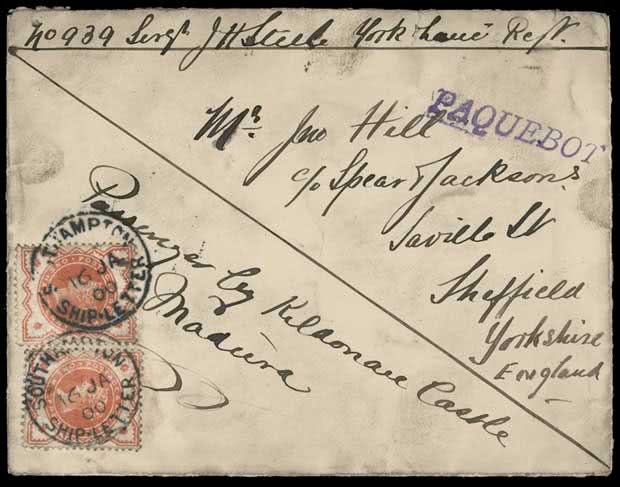 No 939 Sergt J H Steele York & Lancr Regt.
PAQUEBOT
Mr. Jno Hill
c/o Spear & Jacksons
Saville St
Sheffield
Yorkshire
England
Passenger by Kildonan Castle
Madeira
S. THAMPTON
16 JA
00
SHIP-LETTER
SOUTHAMPTON
16 JA
00
SHIP-LETTER